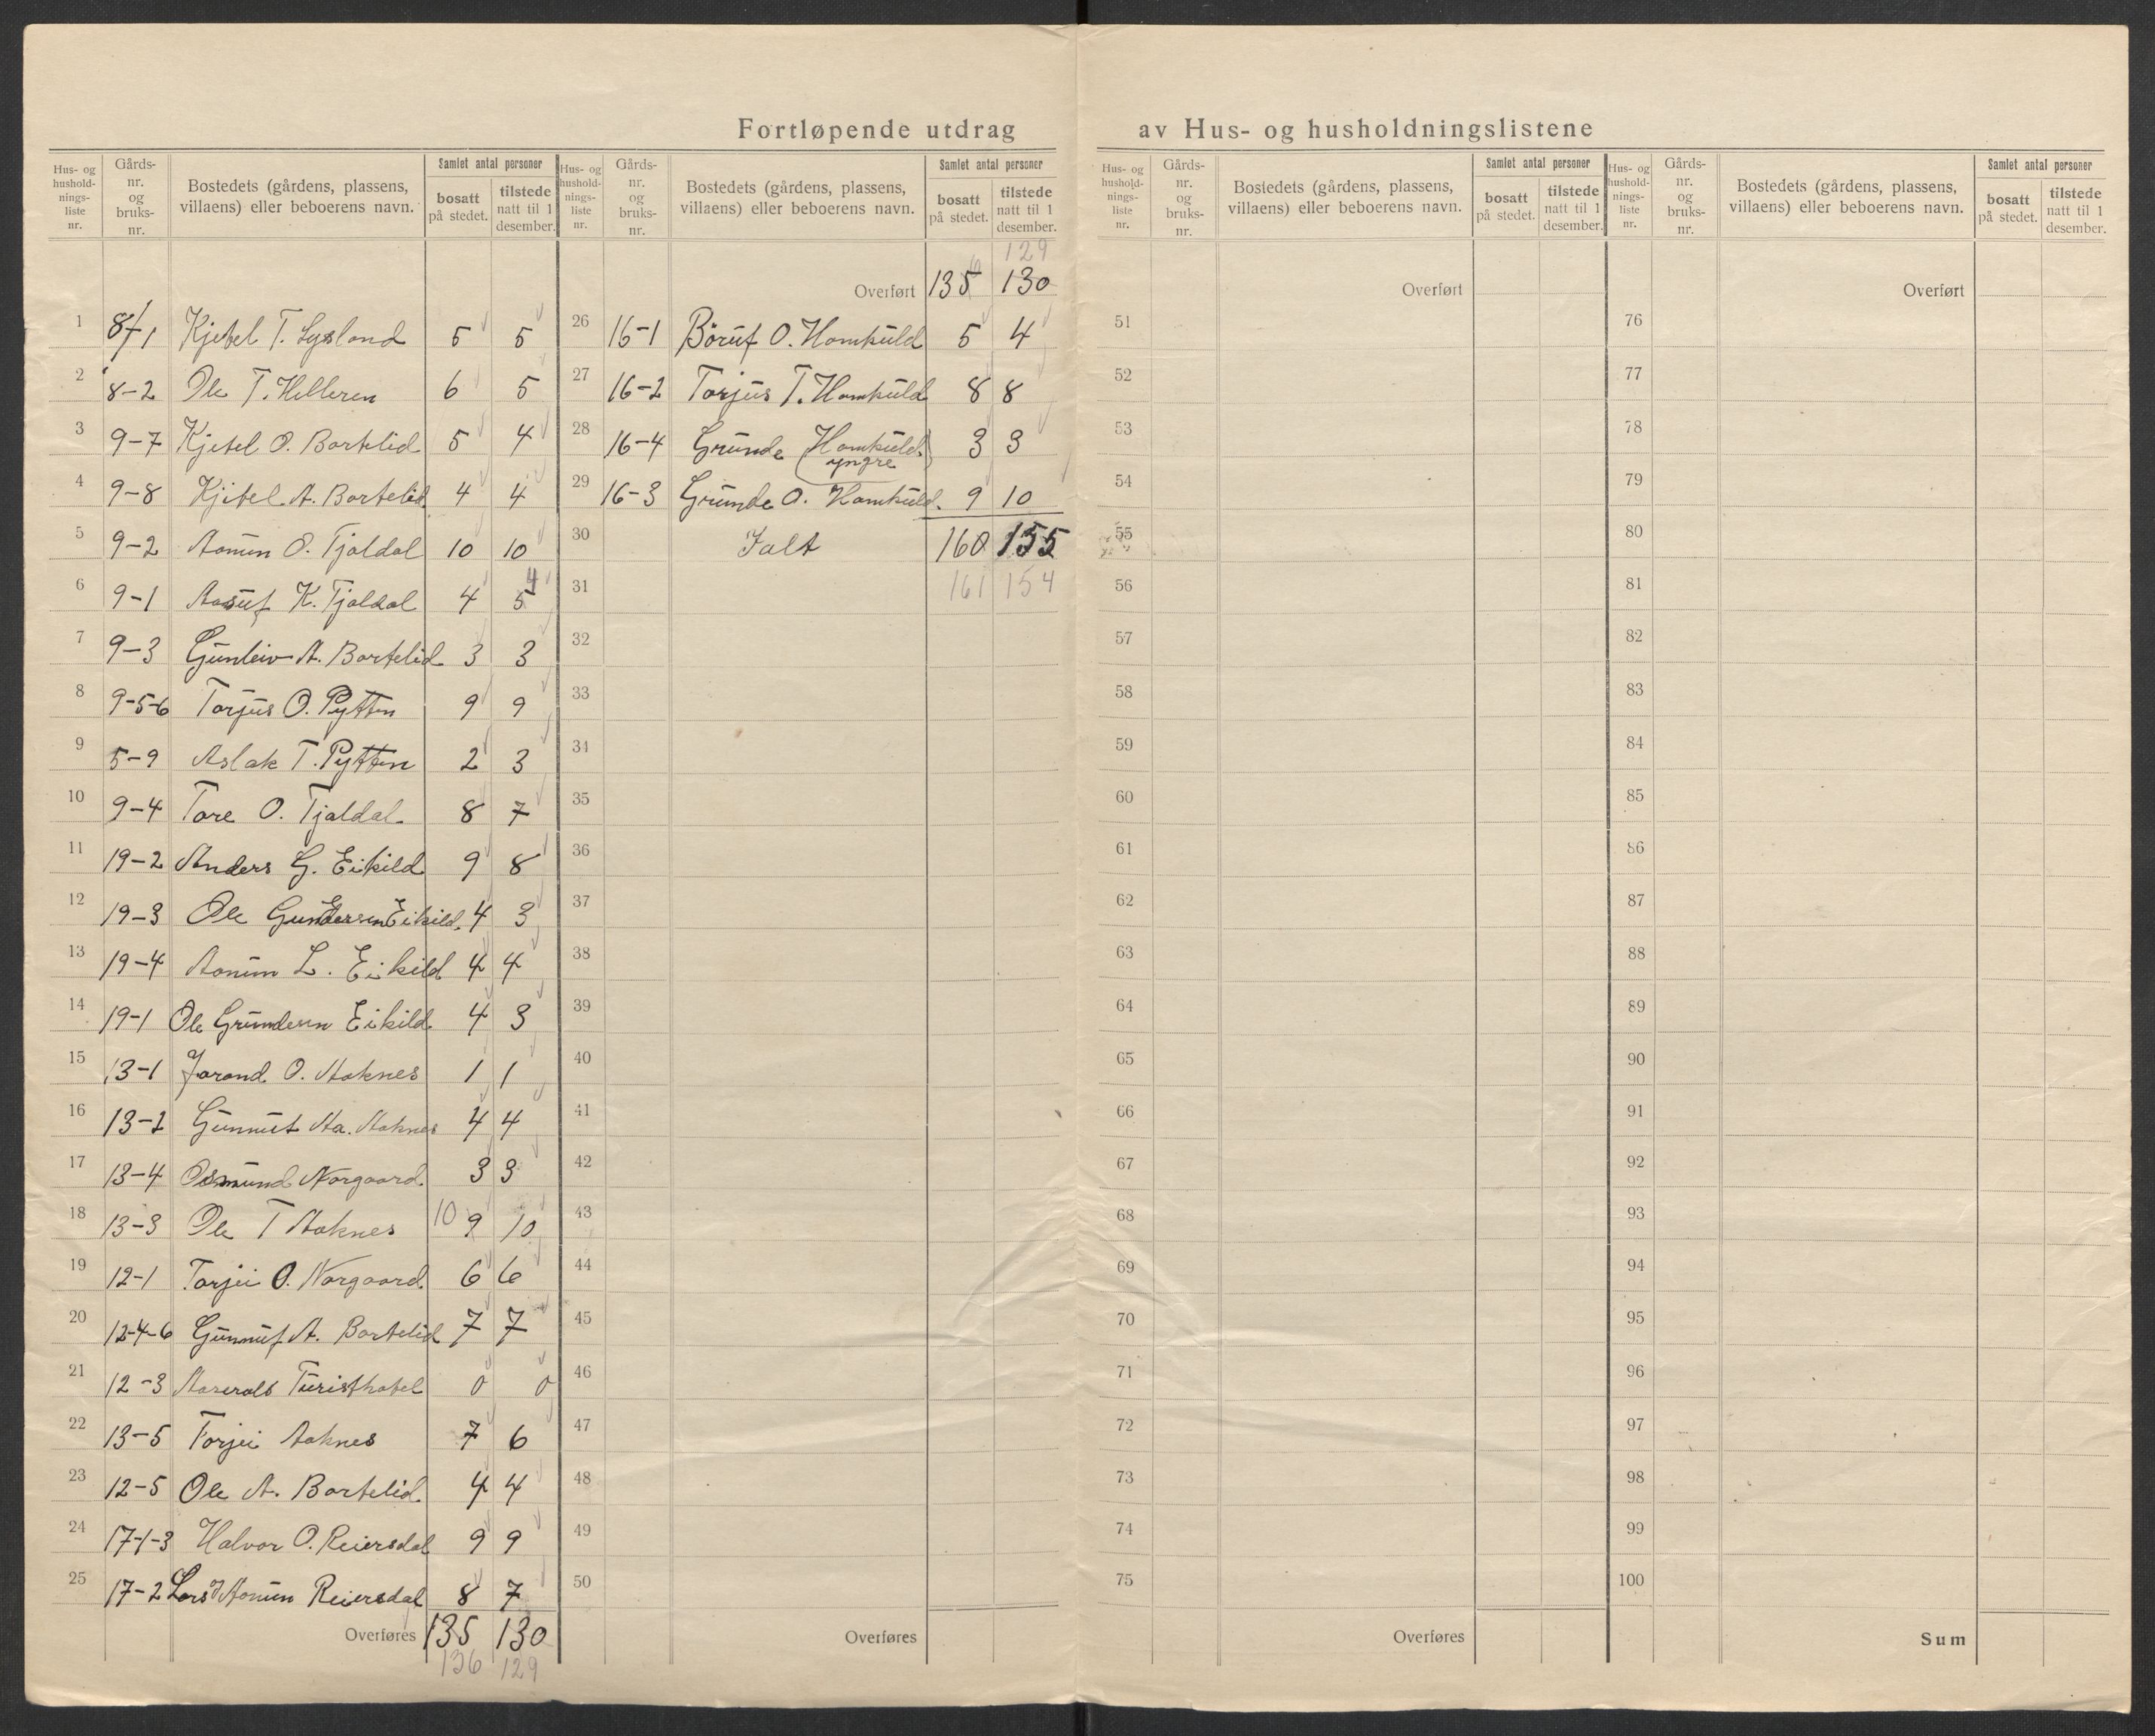 Fortløpende utdrag av Hus- og husholdningslistene
Hus- og hushold- nings- liste nr. | Gårds- nr. og bruks- nr. | Bostedets (gårdens, plassens, villaens) eller beboerens navn. | Samlet antal personer | bosatt på stedet. | tilstede natt til 1 desember.
Hus- og hushold- nings- liste nr. | Gårds- nr. og bruks- nr. | Bostedets (gårdens, plassens, villaens) eller beboerens navn. | Samlet antal personer | bosatt på stedet. | tilstede natt til 1 desember.
1 8/1 Kjetel T. Lysland 5 5
2 8-2 Ole T. Helleren 6 5
3 9-7 Kjetel O. Bortelid 5 4
4 9-8 Kjitel A. Bortelid 4 4
5 9-2 Aanün O. Tjaldal 10 10
6 9-1 Aasüf K. Tjaldal 4 5 4
7 9-3 Günleiv A. Bortelid 3 3
8 9-5-6 Torjüs O. Pytten 9 9
9 5-9 Aslak T. Pytten 2 3
10 9-4 Tore O. Tjaldal 8 7
11 19-2 Anders G. Eikild 9 8
12 19-3 Ole Gundersen Eikild. 4 3
13 19-4 Aanün L. Eikild 4 4
14 19-1 Ole Gründesen Eikild 4 3
15 13-1 Jorand O. Aaknes 1 1
16 13-2 Günnüt Aa. Aaknes 4 4
17 13-4 Osmünd Norgaard. 3 3
18 13-3 Ole T Aaknes 10 9 10
19 12-1 Torjei O. Norgaard. 6 6
20 12-4-6 Günnüf A. Bortelid 7 7
21 12-3 Aaseralt Türisthotel 0 0
22 13-5 Torjei Aaknes 7 6
23 12-5 Ole A. Bortelid. 4 4
24 17-1-3 Halvor O. Reiersdal 9 9
25 17-2 Lars Aanün Reiersdal 8 7
Overføres 135 130
136 129
129
Overført 135 130
26 16-1 Börüf O. Homküld 5 4
27 16-2 Torjüs T. Homküld 8 8
28 16-4 Gründe (Homküld. yngre) 3 3
29 16-3 Gründe O. Homküld. 9 10
30 Ialt 160 155
31 161 154
32
33
34
35
36
37
38
39
40
41
42
43
44
45
46
47
48
49
50
Overføres
Hus- og hushold- nings- liste nr. | Gårds- nr. og bruks- nr. | Bostedets (gårdens, plassens, villaens) eller beboerens navn. | Samlet antal personer | bosatt på stedet. | tilstede natt til 1 desember.
Overført
51
52
53
54
55
56
57
58
59
60
61
62
63
64
65
66
67
68
69
70
71
72
73
74
75
Overføres
Hus- og hushold- nings- liste nr. | Gårds- nr. og bruks- nr. | Bostedets (gårdens, plassens, villaens) eller beboerens navn. | Samlet antal personer | bosatt på stedet. | tilstede natt til 1 desember.
Overført
76
77
78
79
80
81
82
83
84
85
86
87
88
89
90
91
92
93
94
95
96
97
98
99
100
Sum